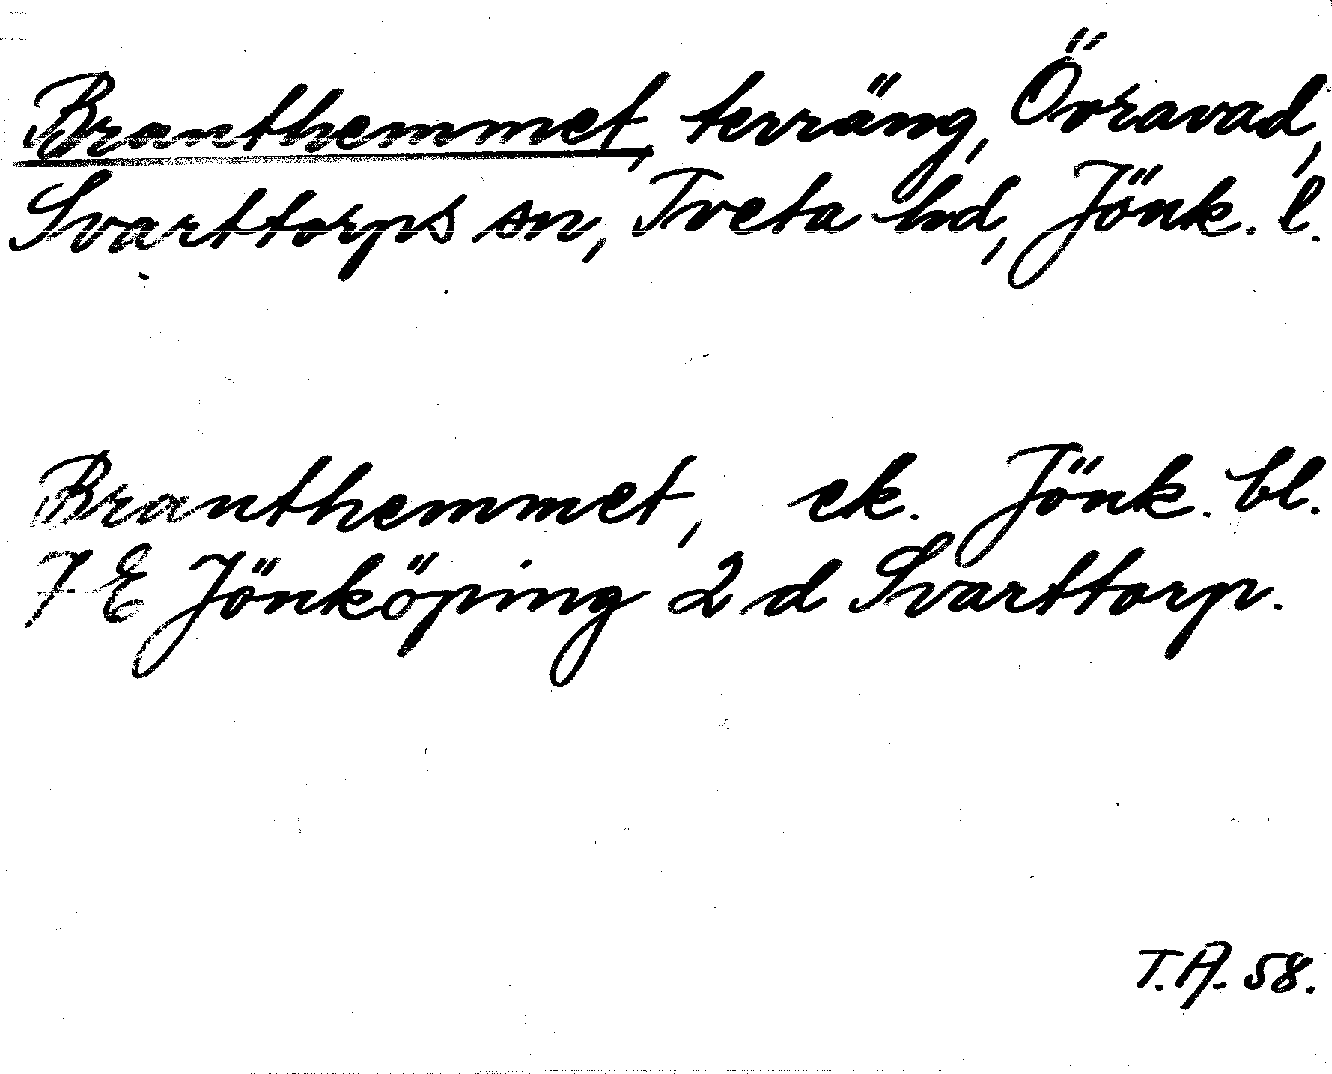 Branthemmet, terräng, Övravad,
Svarttorps sn, Tveta hd, Jönk. l.
Branthemmet, ek. Jönk. bl.
7 E Jönköping 2 d Svarttorp.
T.A. 58.